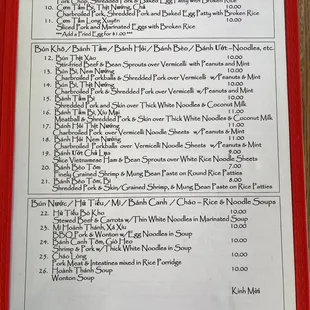 Pork Chop, Shredded Pork & Baked Egg Patty with Broken Rice
10. Cơm Tấm Bì, Thịt Nướng, Chả 10.00
Charbroiled Pork, Shredded Pork and Baked Egg Patty with Broken Rice
11. Cơm Tấm Long Xuyên 10.00
Sliced Pork and Marinated Eggs with Broken Rice
**Add a Fried Egg for $1.00 ***
Bún Khô / Bánh Tằm / Bánh Hỏi / Bánh Bèo / Bánh Ướt – Noodles, etc.
12. Bún Thịt Xào 10.00
Stir-fried Beef & Bean Sprouts over Vermicelli with Peanuts and Mint
13. Bún Bì, Nem Nướng 10.00
Charbroiled Pork & Shredded Pork over Vermicelli w/Peanuts & Mint
14. Bún Bì, Thịt Nướng 10.00
Charbroiled Pork & Shredded Pork over Vermicelli w/Peanuts and Mint
15. Bánh Tằm Bì 10.00
Shredded Pork and Skin over Thick White Noodles & Coconut Milk
16. Bánh Tằm Bì, Xíu Mại 11.00
Meatball & Shredded Pork & Skin over Thick White Noodles & Coconut Milk
17. Bánh Hỏi Thịt Nướng 11.00
Charbroiled Pork over Vermicelli Noodle Sheets w/Peanuts & Mint
18. Bánh Hỏi Nem Nướng 11.00
Charbroiled Pork over Vermicelli Noodle Sheets w/Peanuts & Mint
19. Bánh Ướt Chả Lụa 9.00
Slice Vietnamese Ham & Bean Sprouts over White Rice Noodle Sheets
20. Bánh Bèo Tôm 7.00
Finely Grained Shrimp & Mung Bean Paste on Round Rice Patties
21. Bánh Bèo Tôm, Bì 8.00
Shredded Pork & Skin/Grained Shrimp, & Mung Bean Paste on Rice Patties
Bún Nước / Hủ Tiếu / Mì / Bánh Canh / Cháo – Rice & Noodle Soups
22. Hủ Tiếu Bò Kho 10.00
Stewed Beef & Carrots w/Thin White Noodles in Marinated Soup
23. Mì Hoành Thánh, Xá Xíu 10.00
BBQ Pork & Wonton w/Egg Noodles in Soup
24. Bánh Canh Tôm, Giò Heo 10.00
Shrimp & Pork w/Thick White Noodles in Soup
25. Cháo Lòng 10.00
Pork Meat & Intestines mixed in Rice Porridge
26. Hoành Thánh Soup 10.00
Wonton Soup
Kính Mời